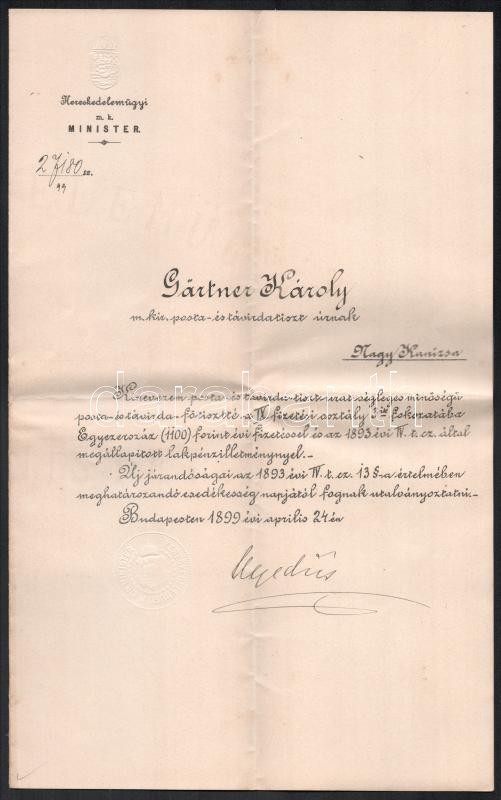 Kereskedelemügyi
m. k.
MINISTER.
sz.
99
Gärtner Károly
m. kir. posta- és távirdatiszt úrnak
Nagy Kanizsa
Kinevezem posta és távirdatiszt urat végleges minőségü
posta- és távirda-főtisztté a IV fizetési osztály fokozatába
Egyezerszáz (1100) forint évi fizetéssel és az 1893 évi IV. t. cz. által
megállapitott lakpénzilletménynyel.-
Uj járandóságai az 1893 évi IV. t. cz. 13 §-a értelmében
meghatározandó esedékesség napjától fognak utalványoztatni.-
Budapesten 1899 évi aprilis 24 én
Hegedüs
darabanth